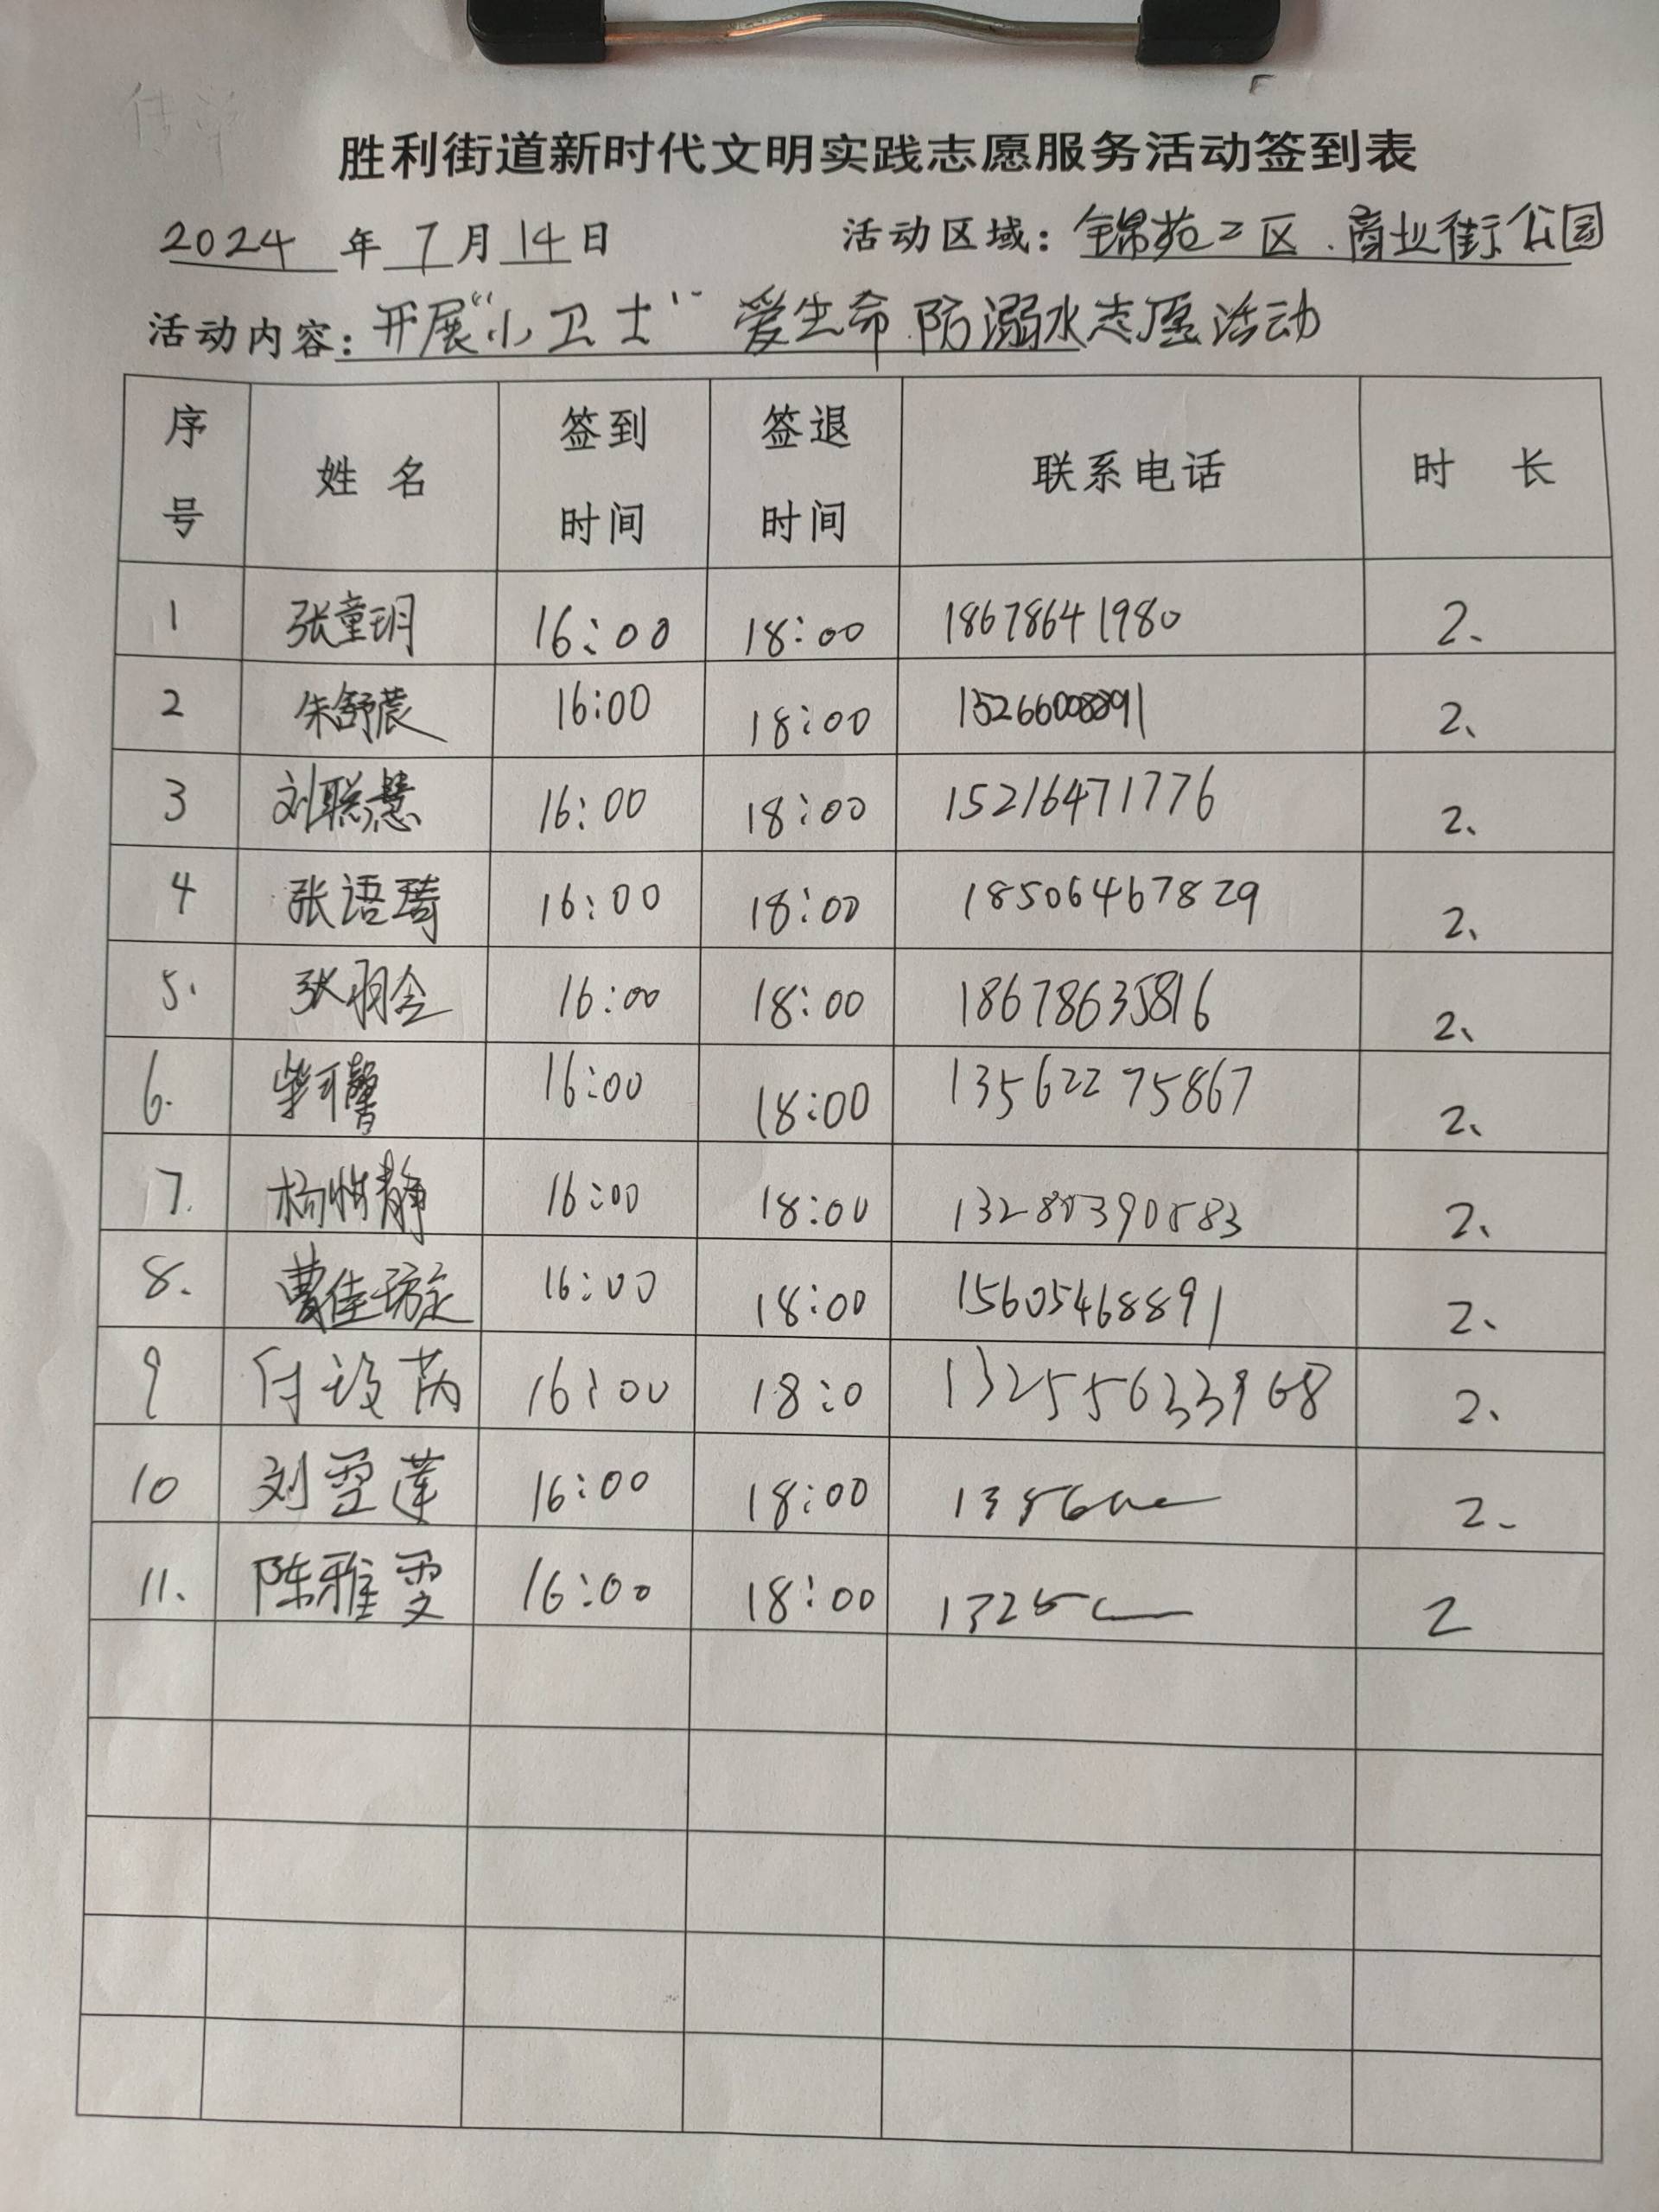 胜利街道新时代文明实践志愿服务活动签到表
2024 年 7 月 14 日 活动区域: 锦苑二区.商业街公园
活动内容: 开展“小卫士”爱生命防溺水志愿活动
序号 姓名 签到时间 签退时间 联系电话 时长
1 张童玥 16:00 18:00 18678641980 2、
2 朱舒 16:00 18:00 2、
3 刘聪慧 16:00 18:00 15216471776 2、
4 张语琦 16:00 18:00 18506467829 2、
5. 张羽 16:00 18:00 18678635816 2、
6. 柴可馨 16:00 18:00 13562275867 2、
7. 杨 静 16:00 18:00 2、
8. 曹佳 16:00 18:00 15605468891 2、
9 付 16:00 18:0 2、
10 刘雪莲 16:00 18:00 2、
11、 陈雅雯 16:00 18:00 2